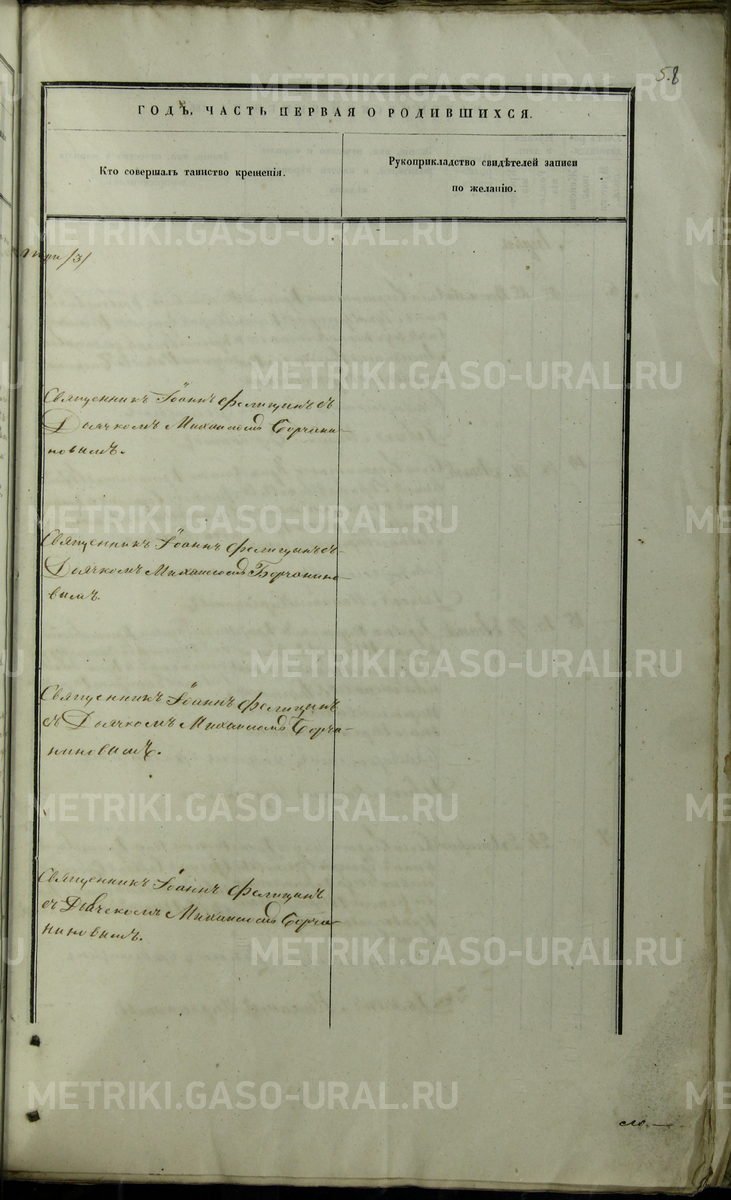 58
ГОДЪ, ЧАСТЬ ПЕРВАЯ О РОДИВШИХСЯ.
Кто совершалъ таинство крещенія.
Рукоприкладство свидѣтелей записи
по желанію.
/3/
Священникъ Іоаннъ Фелицинъ съ
Дьячкомъ Михаиломъ Борчани-
новымъ.
Священникъ Іоаннъ Фелицинъ съ
Дьячкомъ Михаиломъ Борчанино-
вымъ.
Священникъ Іоаннъ Фелицинъ
съ Дьячкомъ Михаиломъ Борча-
ниновымъ.
Священникъ Іоаннъ Фелицинъ
съ Дьячекомъ Михаиломъ Борча-
ниновымъ.
METRIKI.GASO-URAL.RU